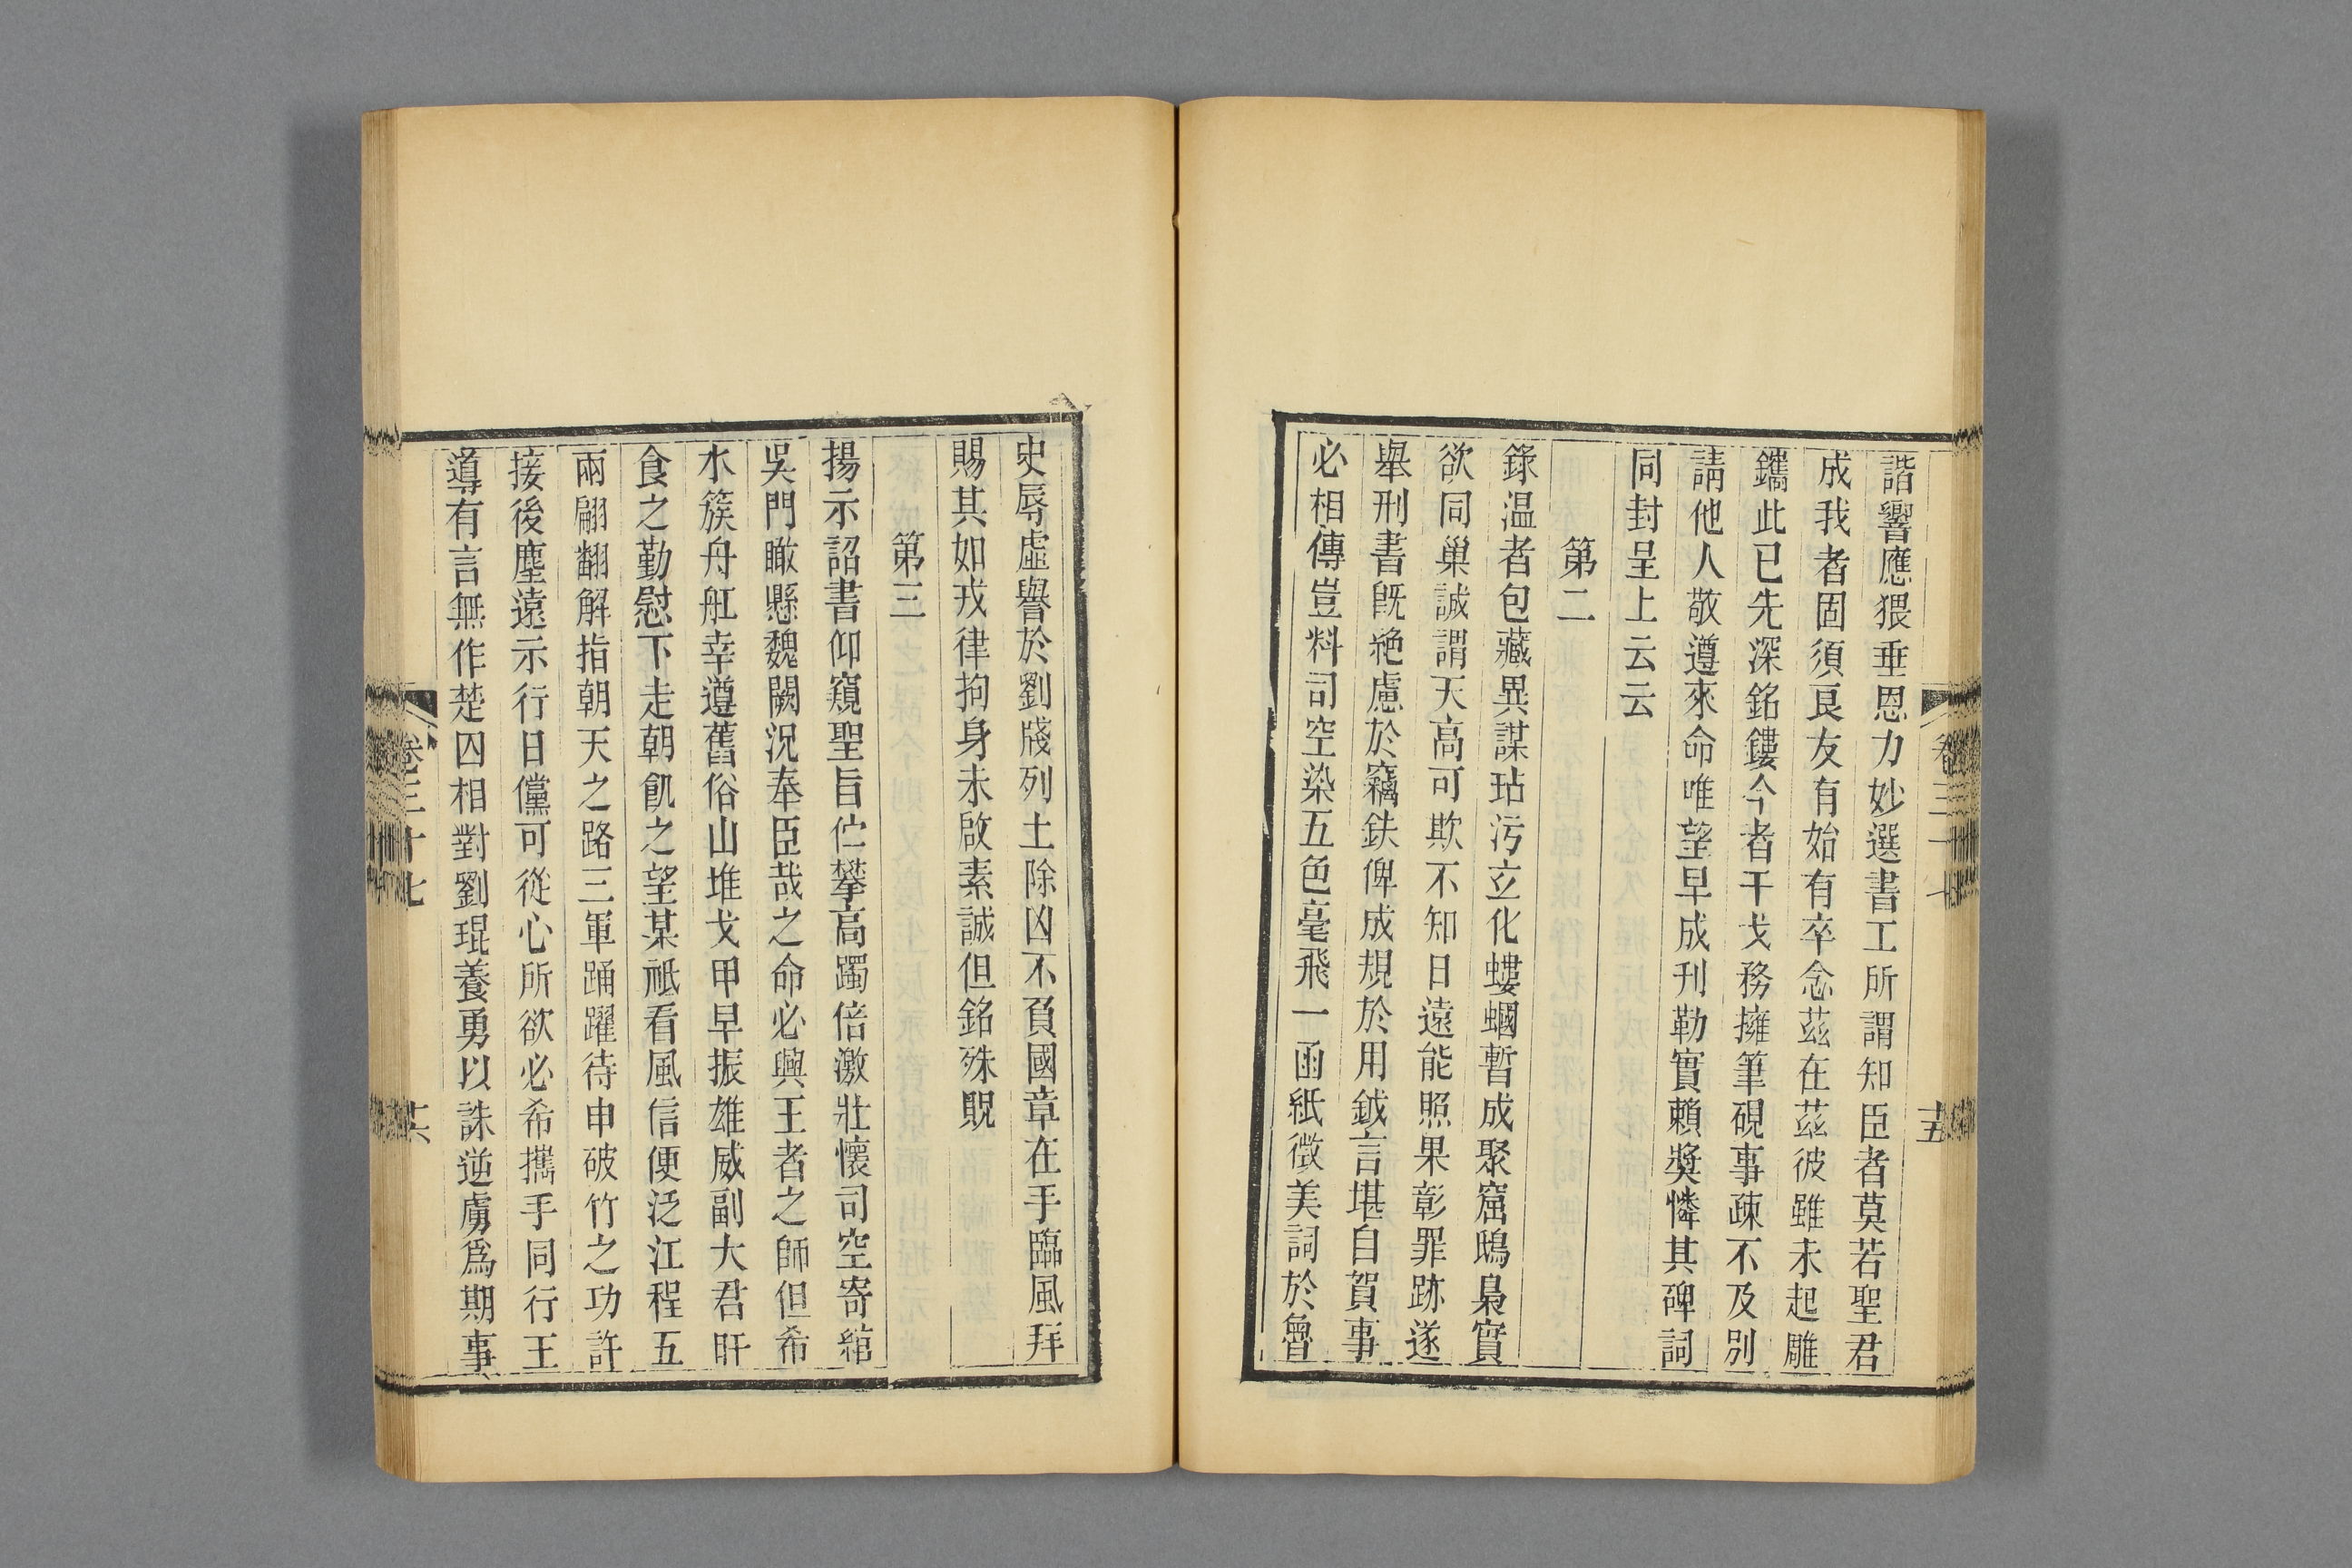 諧響應猥垂恩力妙選書工所謂知臣者莫若聖君
成我者固須良友有始有卒念茲在茲彼雖未起雕
鐫此已先深銘鏤今者干戈務擁筆硯事疎不及別
請他人敬遵來命唯望早成刊勒實賴奬憐其碑詞
同封呈上云云
第二
錄温者包藏異謀玷污立化螻蟈暫成聚窟鴟梟實
欲同巢誠謂天高可欺不知日遠能照果彰罪跡遂
舉刑書旣絶慮於竊鈇俾成規於用鉞言堪自賀事
必相傳豈料司空染五色毫飛一函紙徴美詞於魯
卷三十
十五
史辱虛譽於劉牋列土除凶不負國章在手臨風拜
賜其如戎律拘身未啟素誠但銘殊貺
第三
揚示詔書仰窺聖旨伫攀高躅倍激壯懷司空寄綰
吳門瞰懸魏闕況奉臣哉之命必興王者之師但希
水簇舟舡幸遵舊俗山堆戈甲早振雄威副大君旰
食之勤慰下走朝飢之望某祗看風信便泛江程五
兩翩翻解指朝天之路三軍踊躍待申破竹之功許
接後塵遠示行日儻可從心所欲必希攜手同行王
導有言無作楚囚相對劉琨養勇以誅逆虜爲期事
卷三十七
十六